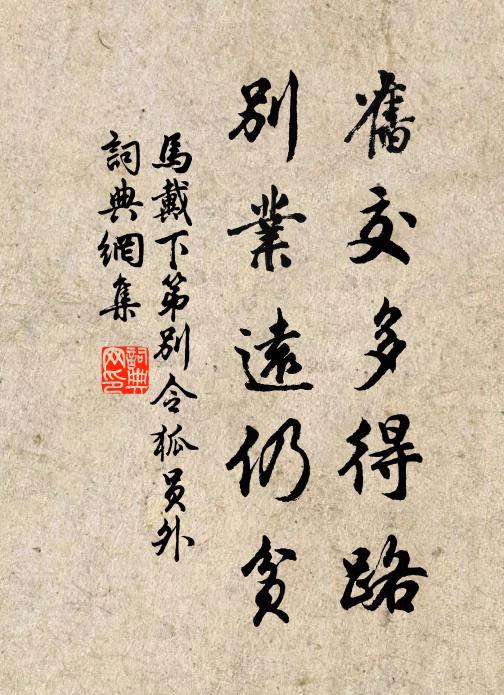 舊交多得路
別業遠仍貧
馬戴下第別令狐員外
詞典網集
詞典網印